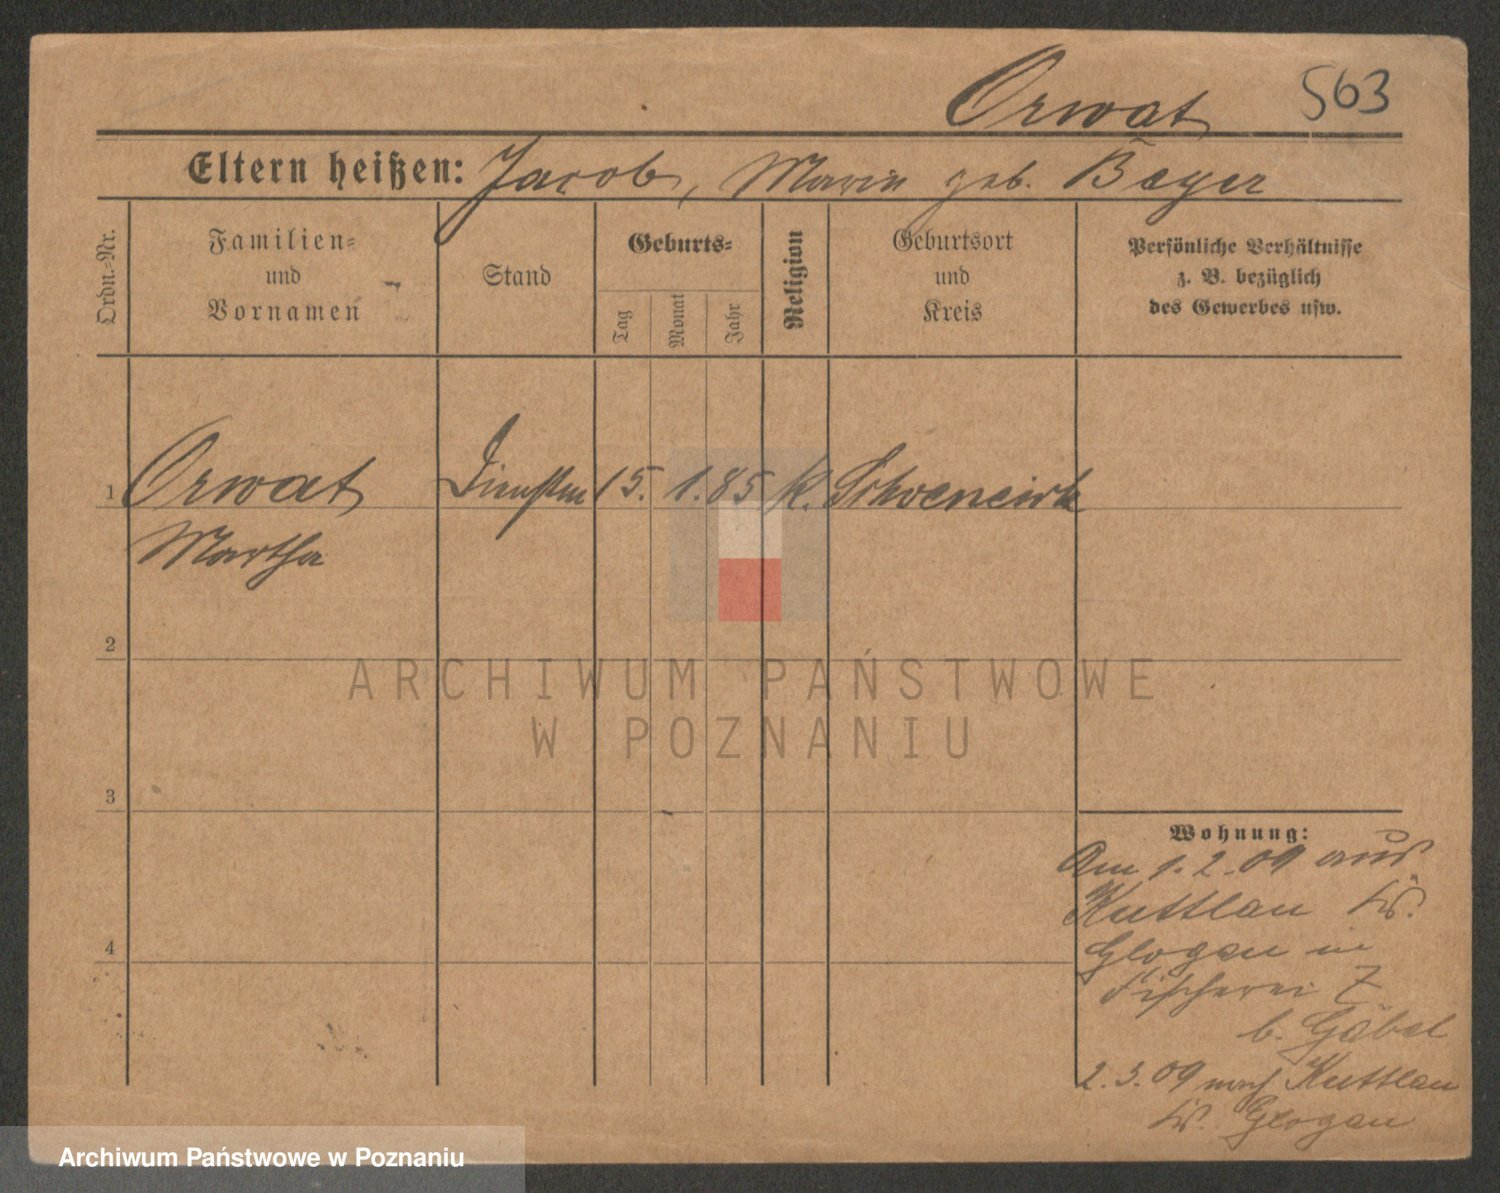 Orwat 563
Eltern heißen: Jacob, Marin geb. Beyer
Ordn.-Nr.
Familien-
und
Vornamen
Stand
Geburts-
Tag
Monat
Jahr
Religion
Geburtsort
und
Kreis
Persönliche Verhältnisse
z. B. bezüglich
des Gewerbes usw.
1 Orwat 15. 1. 85 K.
Martha
2
3
4
Wohnung:
Am 1. 2. 09 aus
Kuttlau Kr.
Glogau in
Fischerei 7
b. Göbel
2. 3. 09 nach Kuttlau
Kr. Glogau
ARCHIWUM PAŃSTWOWE
W POZNANIU
Archiwum Państwowe w Poznaniu